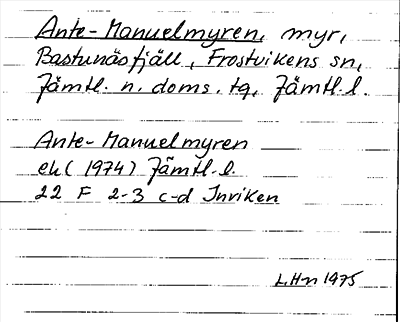 Ante-Manuelmyren, myr,
Bastunäsfjäll, Frostvikens sn,
Jämtl. n. doms. tg, Jämtl. l.
Ante-Manuelmyren
ek (1974) Jämtl. l.
22 F 2-3 c-d Inviken
L.Hn 1975